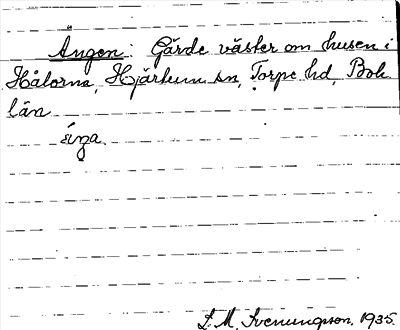 Ängen: Gärde väster om husen i
Hålorna, Hjärtum sn, Torpe hd, Boh
län
äɳa
S. M. Svenungsson. 1935.